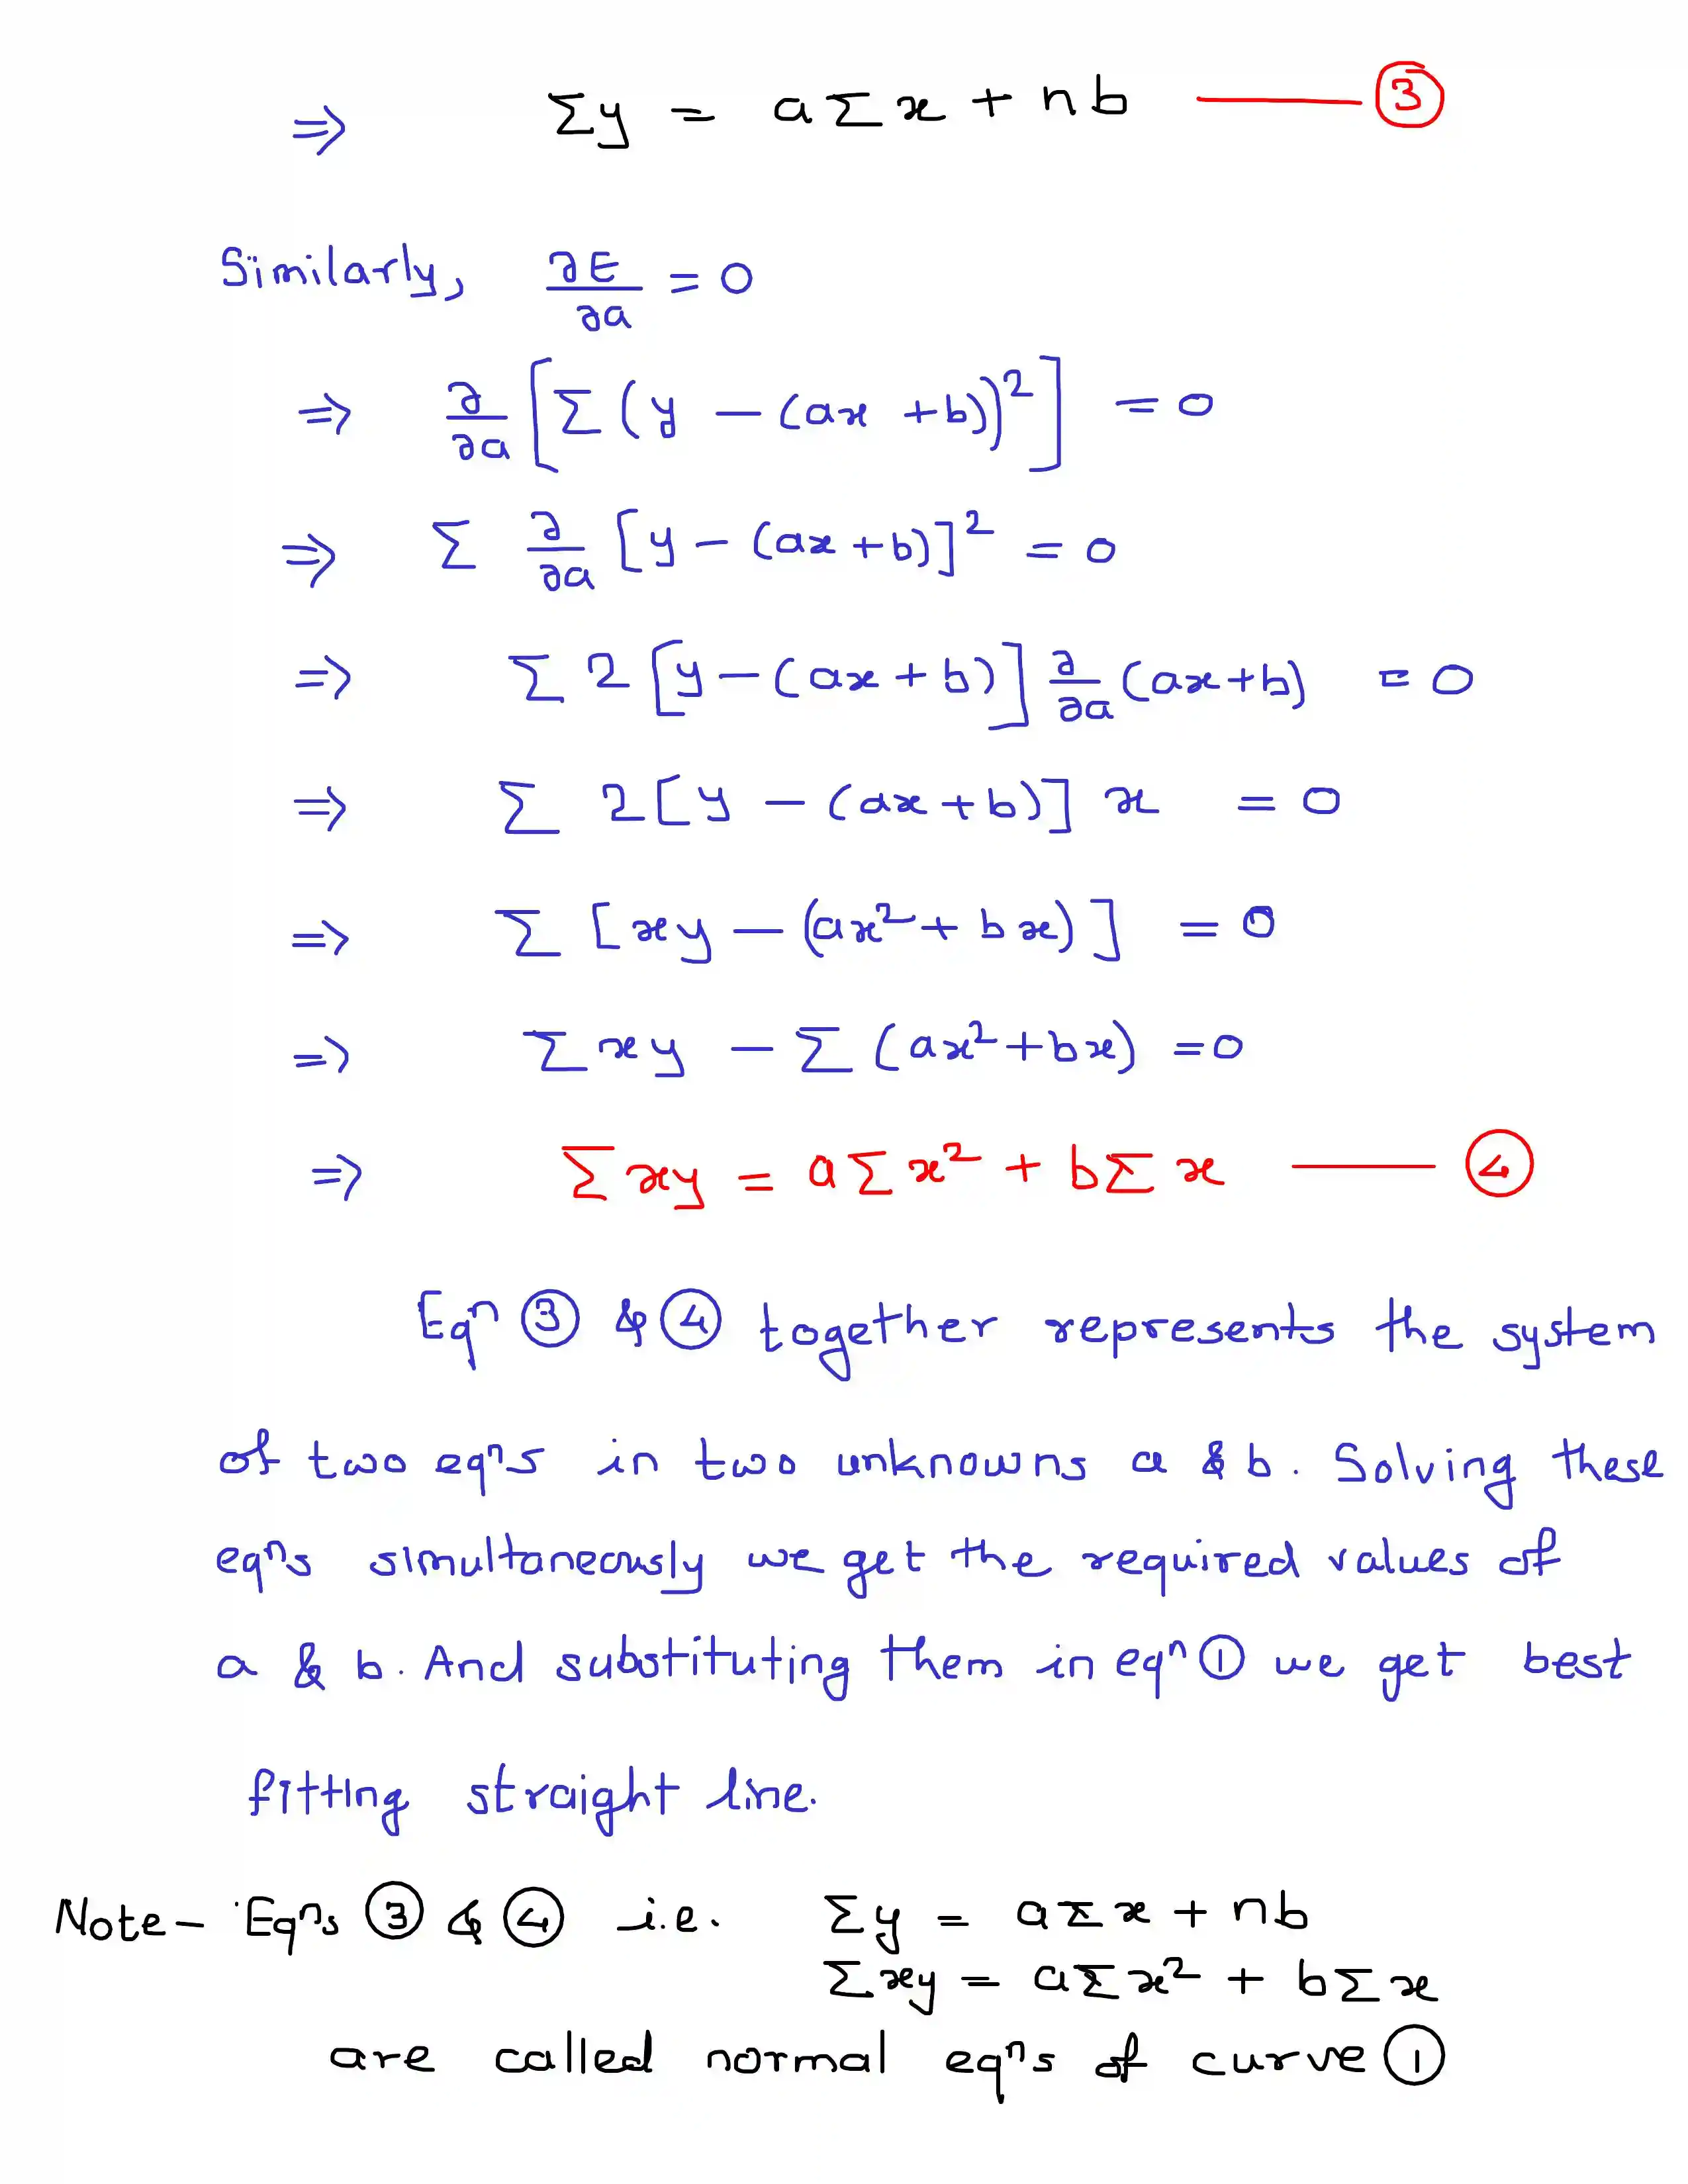 ⇒ Σy = aΣx + nb —— ③
Similarly, ∂E/∂a = 0
⇒ ∂/∂a [Σ(y – (ax +b))²] = 0
⇒ Σ ∂/∂a [y – (ax +b)]² = 0
⇒ Σ 2 [y – (ax + b)] ∂/∂a (ax+b) = 0
⇒ Σ 2[y – (ax +b)] x = 0
⇒ Σ [xy – (ax² + bx)] = 0
⇒ Σxy – Σ (ax² +bx) =0
⇒ Σxy = aΣx² + bΣx —— ④
Eqⁿ ③ & ④ together represents the system
of two eqⁿs in two unknowns a & b. Solving these
eqⁿs simultaneously we get the required values of
a & b. And substituting them in eqⁿ ① we get best
fitting straight line.
Note – Eqⁿs ③ & ④ i.e. Σy = aΣx + nb
Σxy = aΣx² + bΣx
are called normal eqⁿs of curve ①